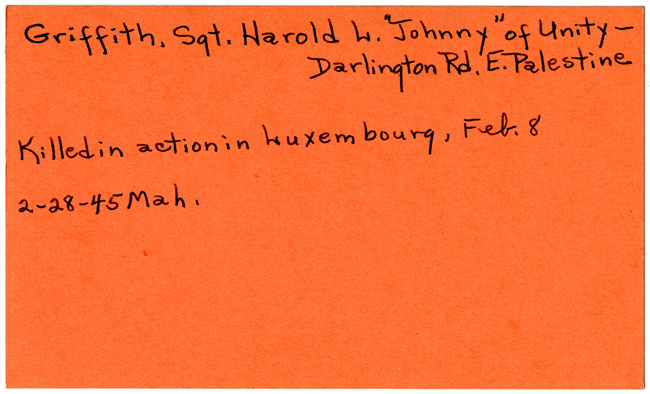 Griffith, Sgt. Harold L. "Johnny" of Unity-
Darlington Rd. E. Palestine
Killed in action in Luxembourg, Feb. 8
2-28-45 Mah.